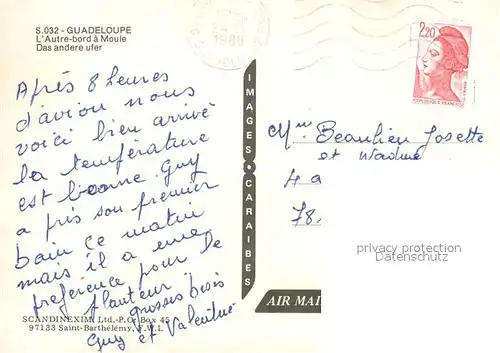 S.032 - GUADELOUPE
L'Autre-bord à Moule
Das andere ufer
1988
2,20
REPUBLIQUE FRANÇAISE
Après 8 heures
d'avion nous
voici bien arrivé
la température
est bonne Guy
a pris son premier
bain ce matin
mais il a une
préférence pour le
planteur.
grosses Bises
Guy et
IMAGES CARAIBES
Beaulieu Josette
et
4 a
78.
privacy protection
Datenschutz
AIR MAI
SCANDINEXIM Ltd.-P.O. Box 45
97133 Saint-Barthélémy, F.W.I.